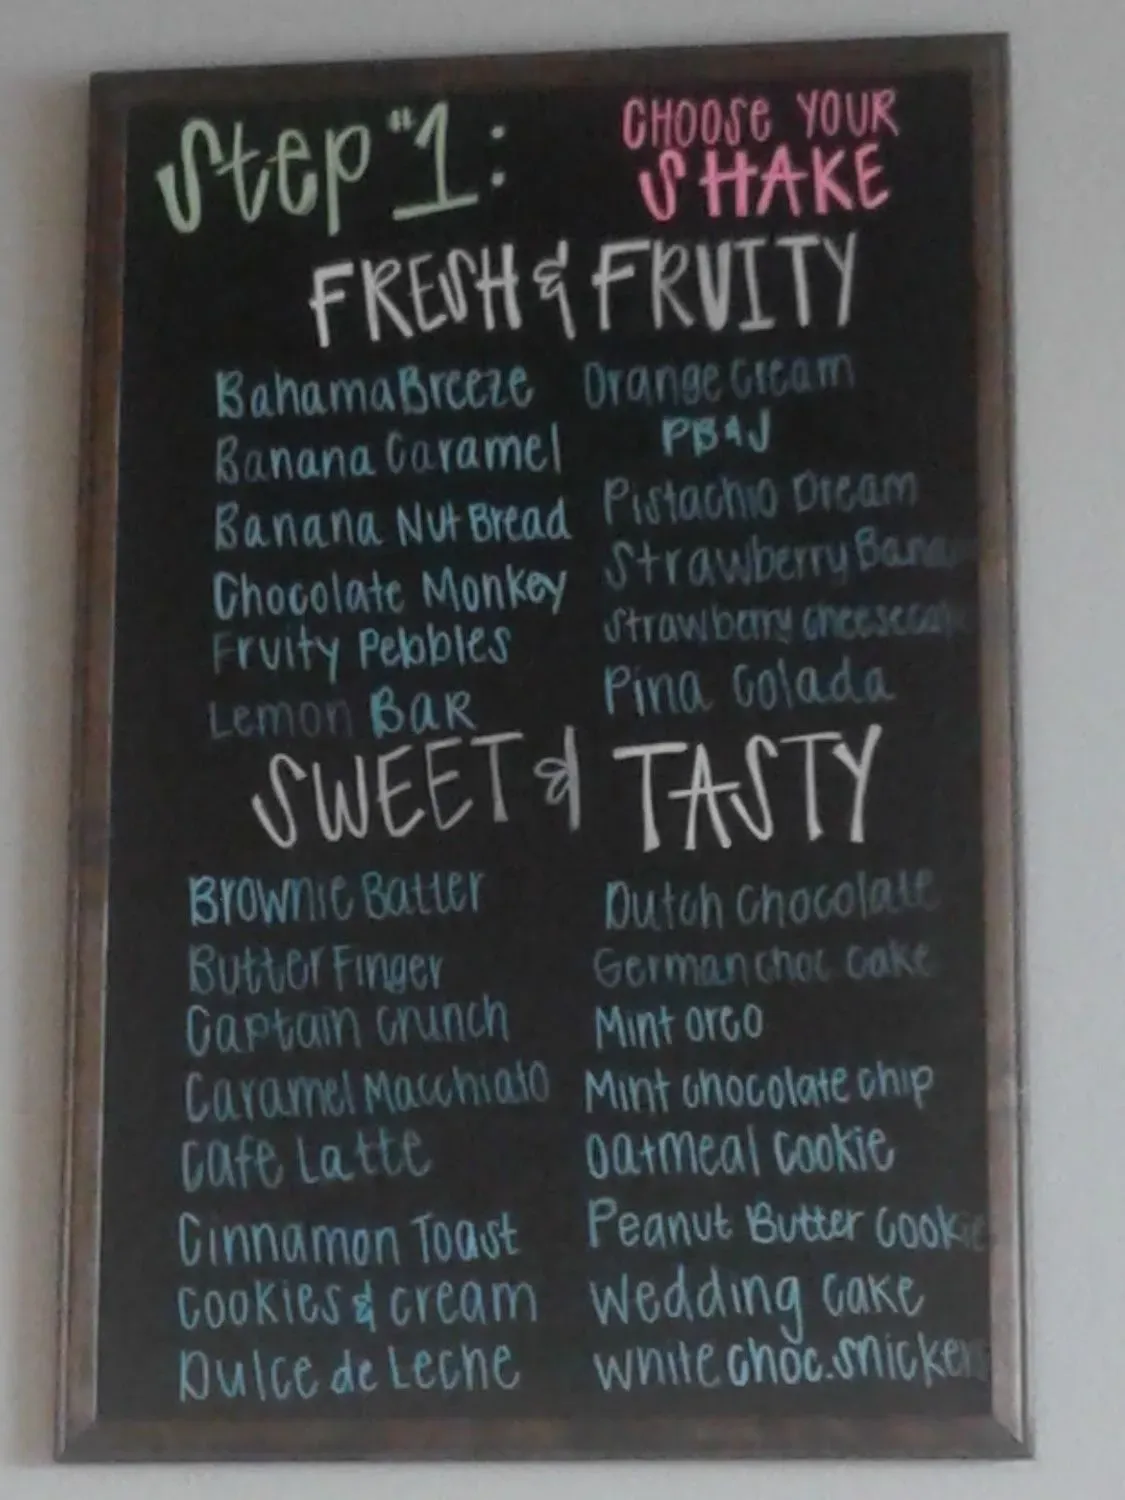 Step #1:
CHOOSE YOUR
SHAKE
FRESH & FRUITY
Bahama Breeze
Banana Caramel
Banana Nut Bread
Chocolate Monkey
Fruity Pebbles
Lemon BAR
Orange Cream
PB&J
Pistachio Dream
Strawberry
Strawberry cheesecake
Pina Colada
SWEET & TASTY
Brownie Batter
Butter Finger
Captain Crunch
Caramel Macchiato
Cafe Latte
Cinnamon Toast
Cookies & cream
Dulce de Leche
Dutch Chocolate
German choc cake
Mint oreo
Mint chocolate chip
Oatmeal Cookie
Peanut Butter Cookie
Wedding Cake
White choc. snickers